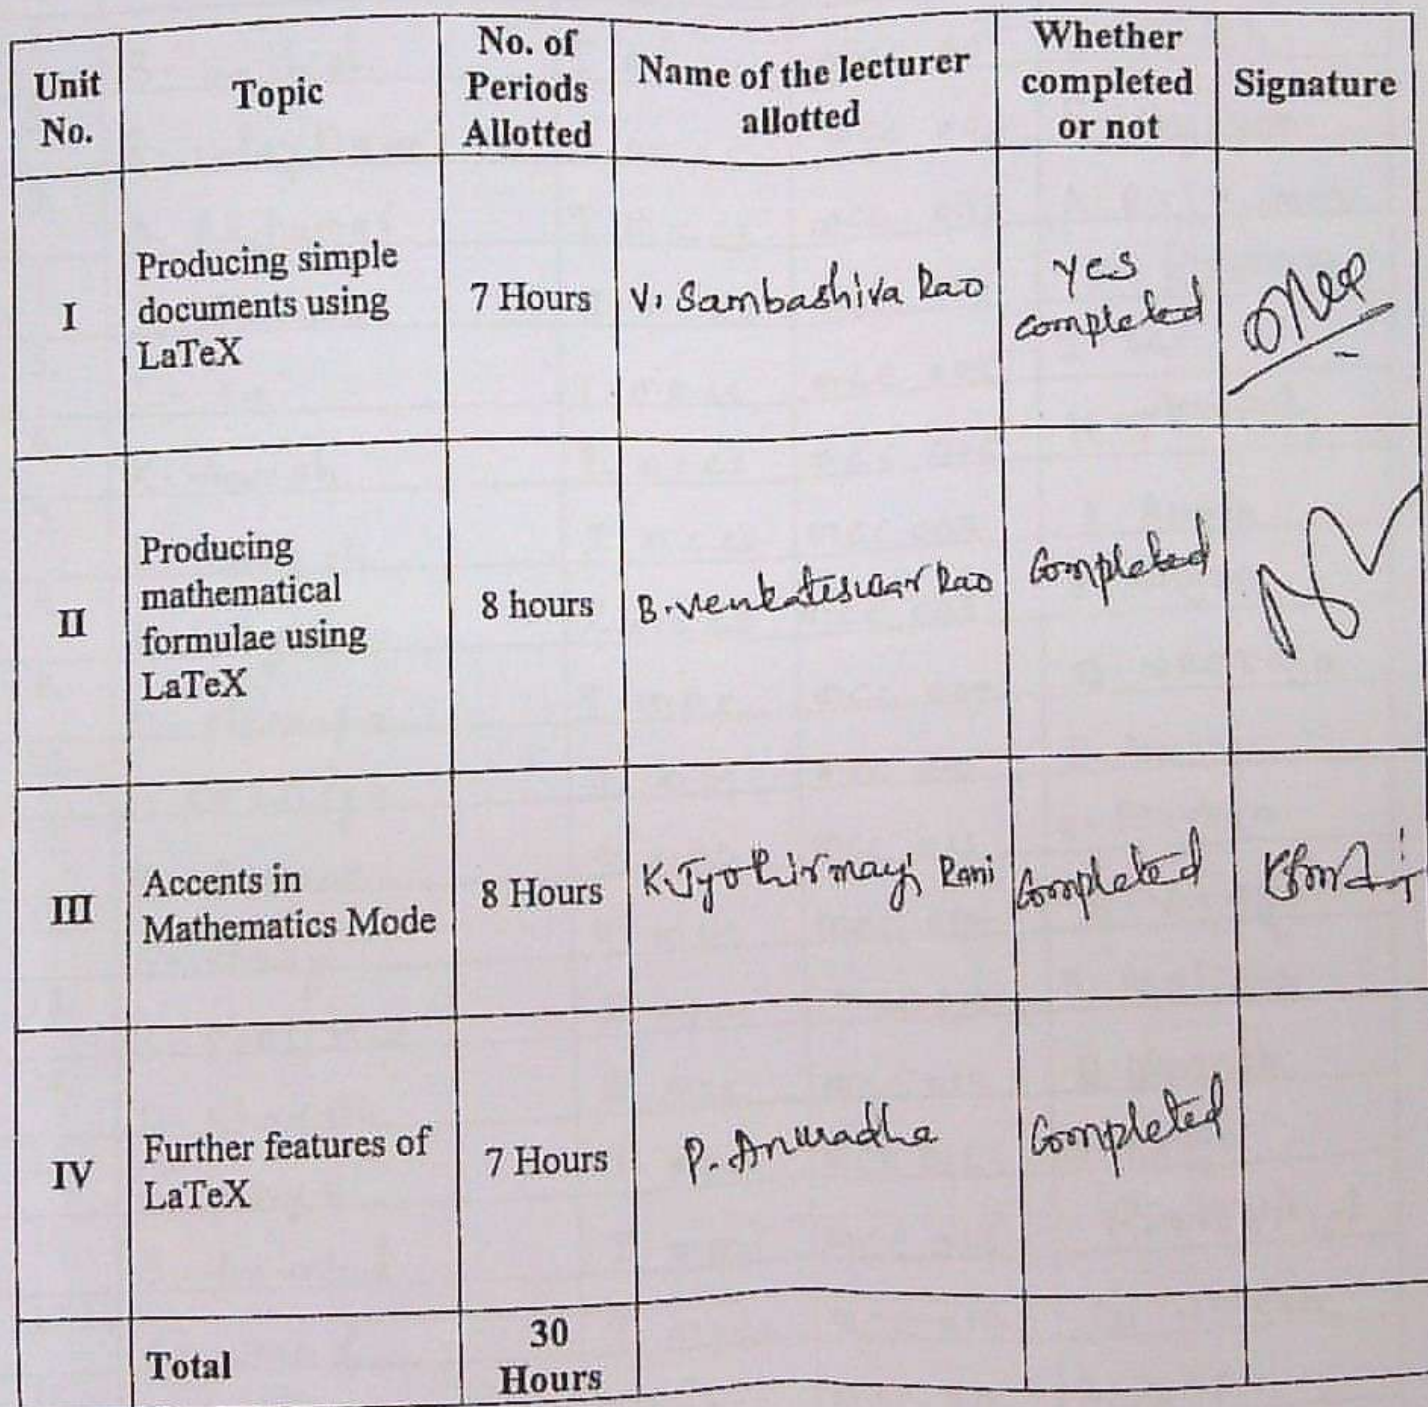 Unit No.
Topic
No. of Periods Allotted
Name of the lecturer allotted
Whether completed or not
Signature
I
Producing simple
documents using
LaTeX
7 Hours
V. Sambashiva Rao
yes
completed
II
Producing
mathematical
formulae using
LaTeX
8 hours
B. Venkateswar Rao
Completed
III
Accents in
Mathematics Mode
8 Hours
K. Jyothirmayi Rani
Completed
IV
Further features of
LaTeX
7 Hours
P. Anuradha
Completed
Total
30
Hours